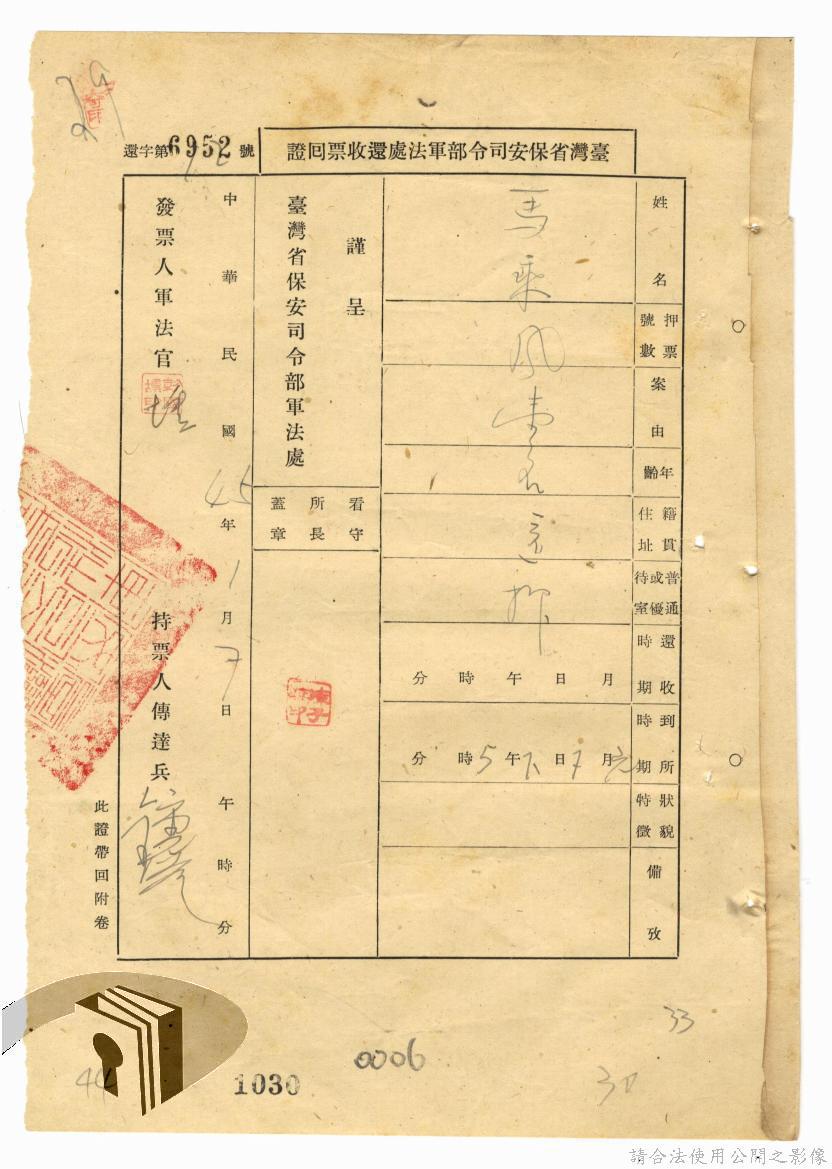 臺灣省保安司令部軍法處還收票囘證
還字第6952號
姓名
馬乘風壹名還押
押票號數
案由
年齡
籍貫住址
普通或優待室
還收時期
月 日 午 時 分
到所時期
元月7日下午5時 分
狀貌特徵
備攷
謹呈
臺灣省保安司令部軍法處
看守所長蓋章
中華民國45年1月7日 午 時 分
發票人軍法官
持票人傳達兵
此證帶回附卷
0006
1030
33
30
44
請合法使用公開之影像